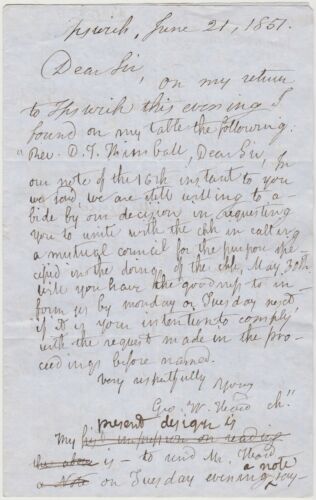 Ipswich, June 21, 1851.
Dear Sir,
on my return
to Ipswich this evening I
found on my table the following:
"Rev. D. T. Kimball, Dear Sir, In
our note of the 16th instant to you
we said, we are still willing to a-
bide by our decision in requesting
you to unite with the chh in calling
a mutual council for the purpose spe-
cified in the doings of the chh, May 30th.
will you have the goodness to in-
form us by monday or Tuesday next,
if it is your intention to comply
with the request made in the pro-
ceedings before named.
very respectfully yours
Geo. W. Heard ch."
present design is
My first impression on reading
the above is – to send Mr. Heard
a note
a Note on Tuesday evening, say-